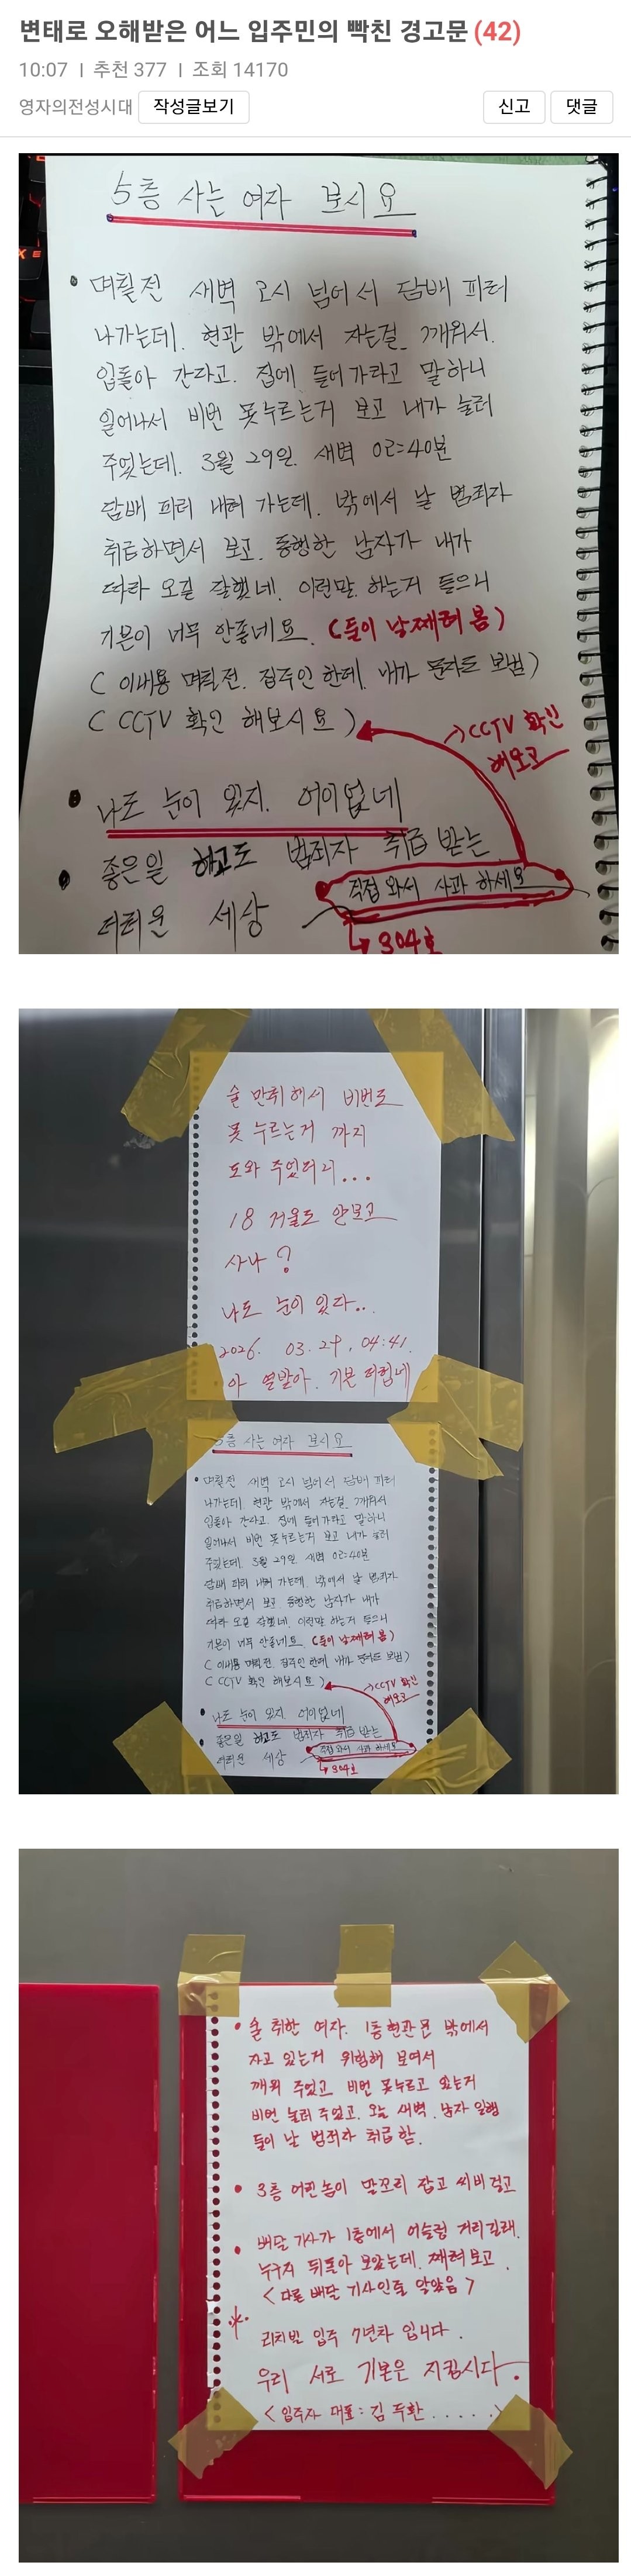 변태로 오해받은 어느 입주민의 빡친 경고문 (42)
10:07 | 추천 377 | 조회 14170
영자의전성시대 작성글보기 신고 댓글
5층 사는 여자 보시요
• 며칠전 새벽 2시 넘어서 담배 피러
나가는데. 현관 밖에서 자는걸 깨워서.
입돌아 간다고. 집에 들어가라고 말하니
일어나서 비번 못누르는거 보고 내가 눌러
주었는데. 3월 29일. 새벽 02:40분
담배 피러 내려 가는데. 밖에서 날 범죄자
취급하면서 보고. 동행한 남자가 내가
따라 오길 잘했네. 이런말. 하는거 들으니
기분이 너무 안좋네요. (둘이 날째려 봄)
( 이내용 며칠전. 집주인 한테. 내가 문자도 보냄)
( CCTV 확인 해보시요 )
→ CCTV 확인
해보고
• 나도 눈이 있지. 어이없네
• 좋은일 하고도 범죄자 취급 받는
더러운 세상
직접 와서 사과 하세요
↳ 304호
술 만취해서 비번도
못 누르는거 까지
도와 주었더니...
18 거울도 안보고
사나?
나도 눈이 있다..
2026. 03. 29. 04:41.
아 열받아. 기분 더럽네
5층 사는 여자 보시요
• 며칠전 새벽 2시 넘어서 담배 피러
나가는데. 현관 밖에서 자는걸. 깨워서
입돌아 간다고. 집에 들어가라고 말하니
일어나서 비번 못누르는거 보고 내가 눌러
주었는데. 3월 29일. 새벽 02:40분
담배 피러 내려 가는데. 밖에서 날 범죄자
취급하면서 보고. 동행한 남자가 내가
따라 오길 잘했네. 이런말. 하는거 들으니
기분이 너무 안좋네요. (둘이 날째려 봄)
( 이내용 며칠전. 집주인 한테. 내가 문자도 보냄)
( CCTV 확인 해보시요 )
→ CCTV 확인
해보고
• 나도 눈이 있지. 어이없네
• 좋은일 하고도 범죄자 취급 받는
더러운 세상
직접 와서 사과 하세요
↳ 304호
• 술 취한 여자. 1층현관문 밖에서
자고 있는거 위험해 보여서
깨워 주었고 비번 못누르고 있는거
비번 눌러 주었고. 오늘 새벽. 남자 일행
들이 날 범죄자 취급함.
• 3층 어린놈이 말꼬리 잡고 시비 걸고
• 배달 기사가 1층에서 어슬렁 거리길래.
누구지 뒤돌아 보았는데. 째려보고.
< 다른 배달 기사인줄 알았음 >
* 리치빌 입주 7년차 입니다.
우리 서로 기본은 지킵시다.
< 입주자 대표 : 김두환 ..... >